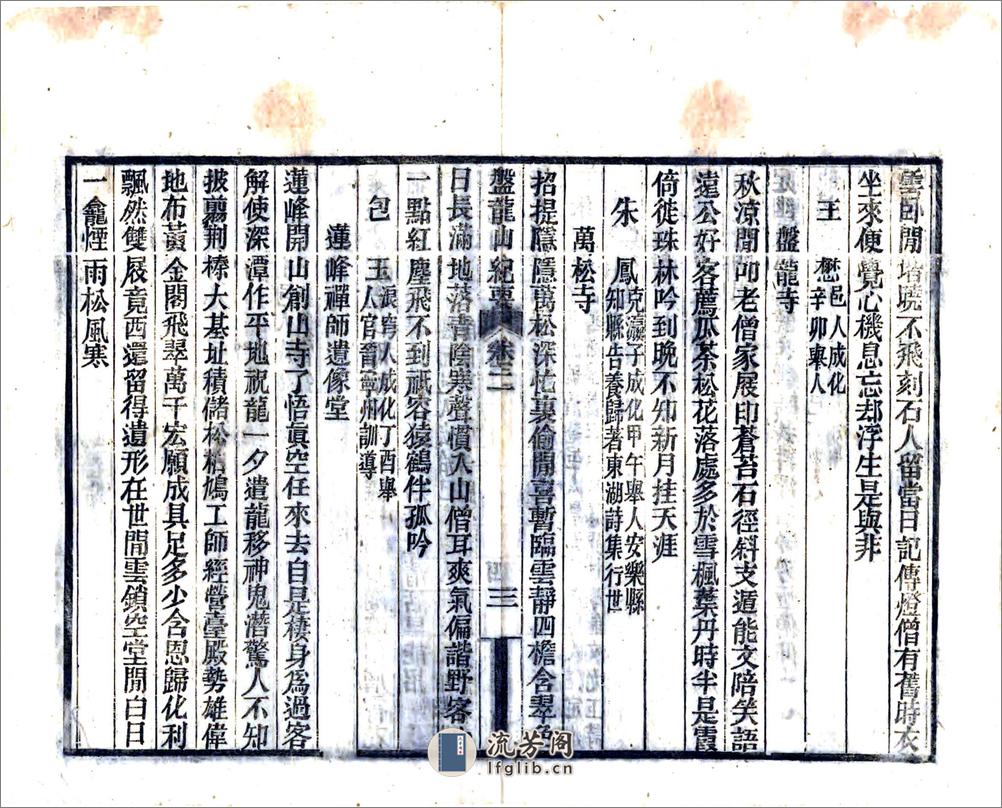 雲臥閒增曉不飛刻石人留當日記傳燈僧有舊時衣
坐來便覺心機息忘却浮生是與非
王
懋邑人成化
辛卯舉人
盤龍寺
秋涼閒叩老僧家展印蒼苔石徑斜支遁能文陪笑語
遠公好客薦瓜茶松花落處多於雪楓葉丹時半是霞
倚徙珠林吟到晚不知新月挂天涯
朱
鳳克瀛子成化甲午舉人安樂縣
知縣告養歸著東湖詩集行世
萬松寺
招提隱隱萬松深忙裏偷閒喜暫臨雲靜四檐含翠
盤龍山紀要
卷三
三
日長滿地落青陰寒聲慣入山僧耳爽氣偏諧野客
一點紅塵飛不到祇容猿鶴伴孤吟
包
玉浪穹人成化丁酉舉
人官晉寧州訓導
蓮峰禪師遺像堂
蓮峰開山創山寺了悟眞空任來去自是棲身爲過客
解使深潭作平地祝龍一夕遣龍移神鬼潛驚人不知
披翦荆榛大基址積儲松栢鳩工師經營臺殿勢雄偉
地布黃金閣飛翠萬千宏願成具足多少含恩歸化利
飄然雙屐竟西還留得遺形在世閒雲鎖空堂閒白日
一龕煙雨松風寒
流芳閣
lfglib.cn